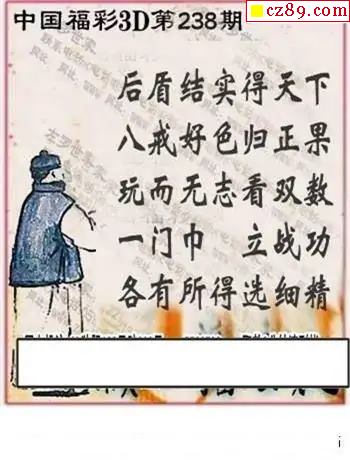 cz89.com
中国福彩3D第238期
后盾结实得天下
八戒好色归正果
玩而无志看双数
一门巾 立战功
各有所得选细精
i